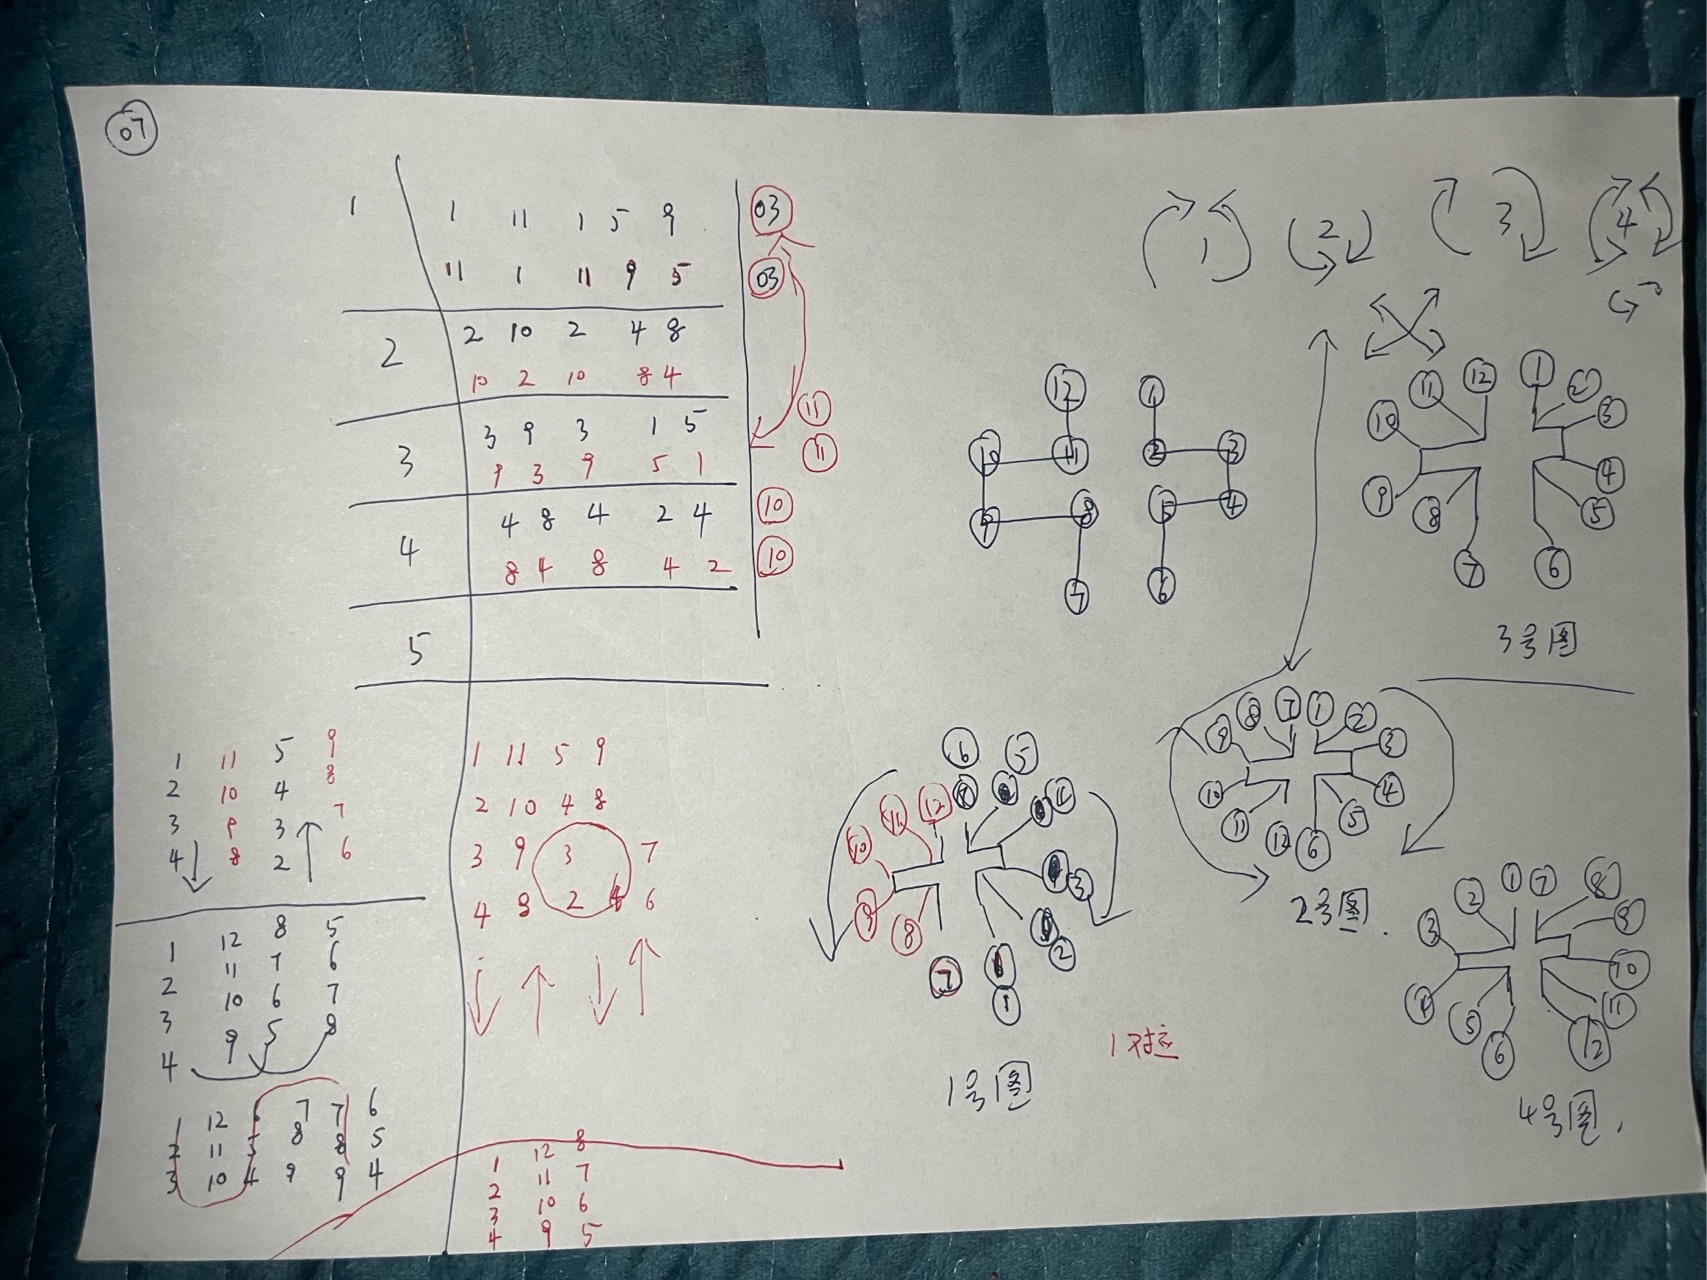 07
1 1 11 1 5 9 03
11 1 11 9 5 03
2 2 10 2 4 8
10 2 10 8 4
3 3 9 3 1 5 11
9 3 9 5 1 11
4 4 8 4 2 4 10
8 4 8 4 2 10
5
1 11 5 9
2 10 4 8
3 9 3 7
4 8 2 6
1 12 8 5
2 11 7 6
3 10 6 7
4 9 5 8
1 12 6 7 7 6
2 11 5 8 8 5
3 10 4 9 9 4
1 11 5 9
2 10 4 8
3 9 3 7
4 8 2 6
1 12 8
2 11 7
3 10 6
4 9 5
1 2 3 4
12 1
10 11 2 3
9 8 5 4
7 6
11 12 1 2
10 3
9 8 4 5
7 6
3号图
8 7 1 2
9 3
10 4
11 12 6 5
2号图.
6 5
11 12
10
9 8 3
7 2
1
1号图
1对应
2 1 7 8
3 9
4 10
5 11
6 12
4号图.